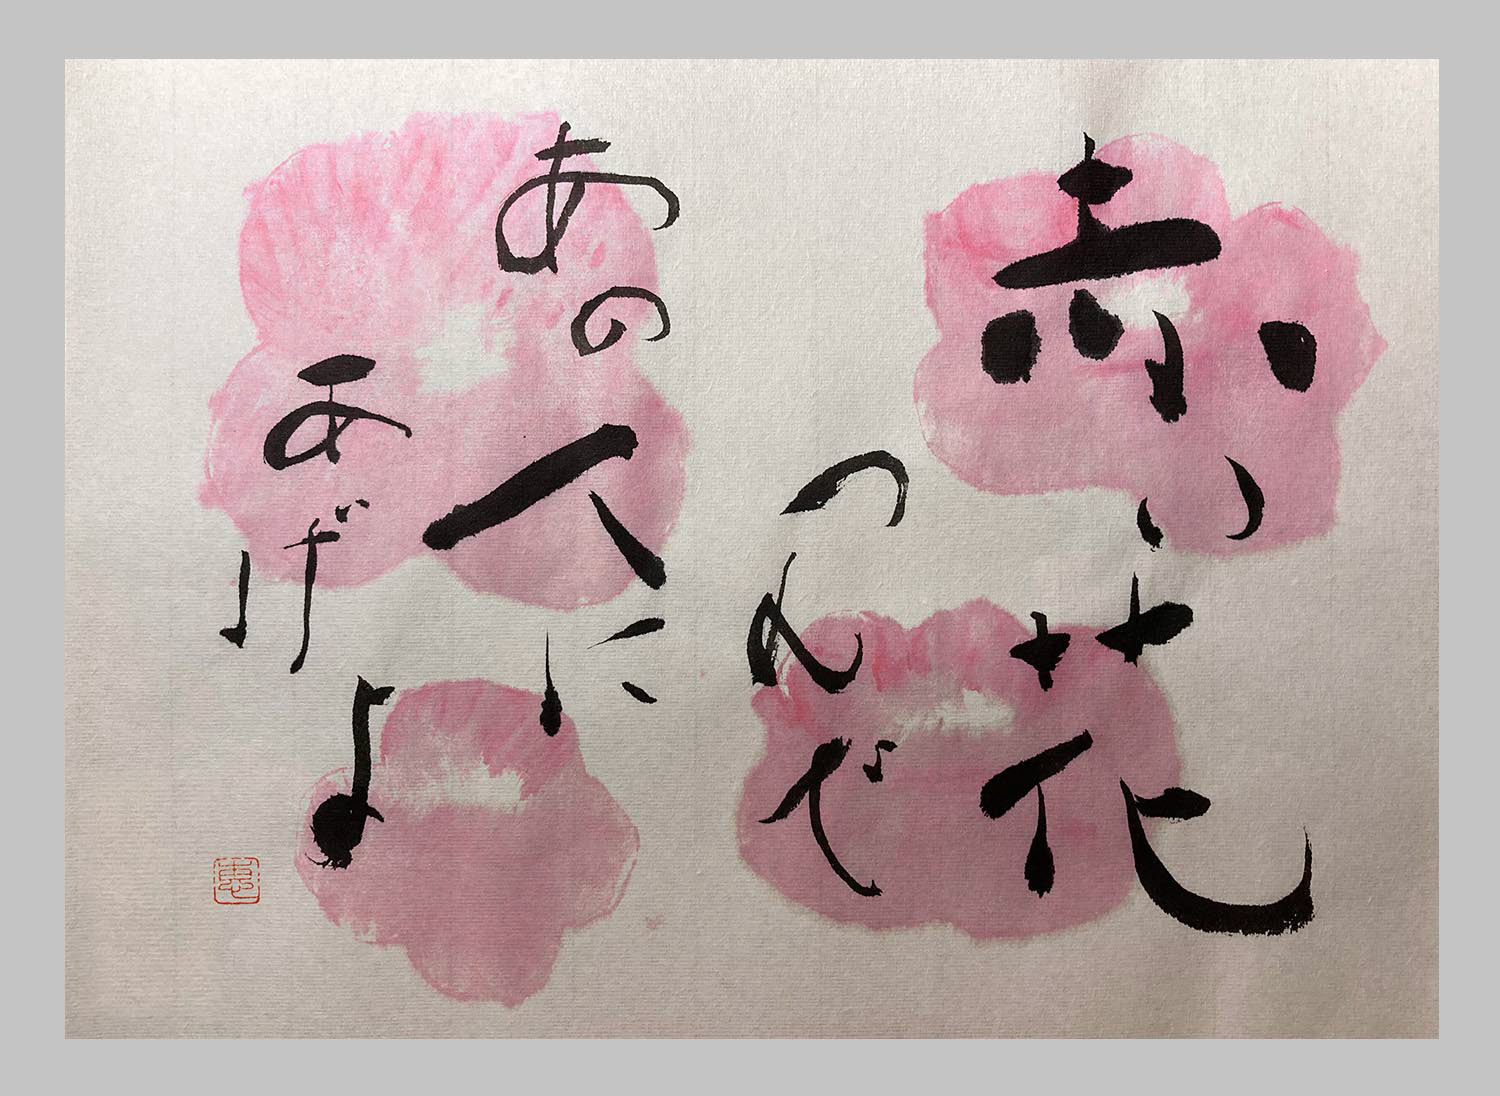 赤い花
つんで
あの人に
あげよ
恵